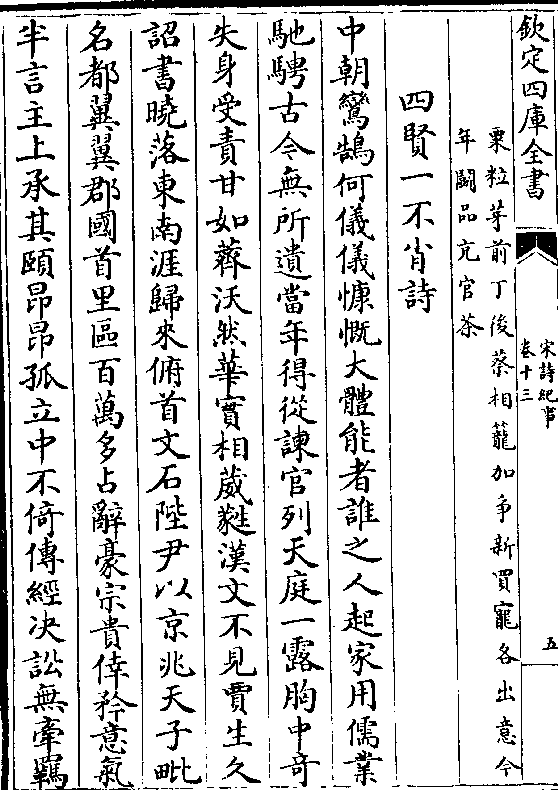 欽定四庫全書
宋詩紀事
卷十三
五
粟粒芽前丁後蔡相籠加爭新買寵各出意今
年鬬品充官茶
四賢一不肖詩
中朝鸞鵠何儀儀慷慨大體能者誰之人起家用儒業
馳騁古今無所遺當年得從諫官列天庭一露胸中奇
失身受責甘如薺沃然華實相葳蕤漢文不見賈生久
詔書曉落東南涯歸來俯首文石陛尹以京兆天子毗
名都翼翼郡國首里區百萬多占辭豪宗貴倖矜意氣
半言主上承其頤昂昂孤立中不倚傳經决訟無牽羈